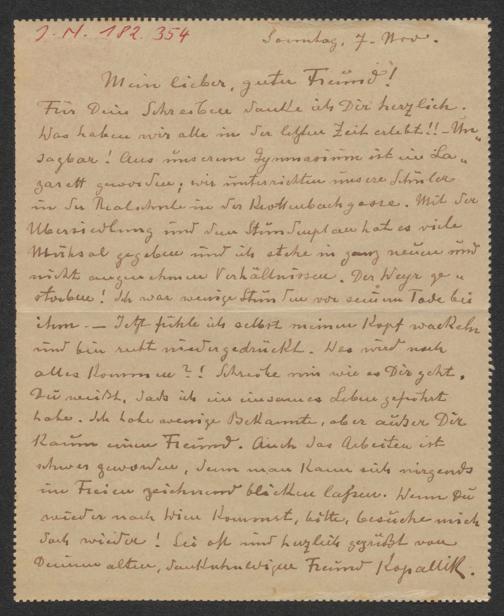 J. N. 182.354
Sonntag, 7. Nov.
Mein lieber, guter Freund!
Für Dein Schreiben danke ich Dir herzlich.
Was haben wir alle in der letzten Zeit erlebt!! – Un„
sagbar! Aus unserem Gymnasium ist ein La„
zarett geworden; wir unterrichten unsere Schüler
in der Realschule in der Krottenbachgasse. Mit der
Übersiedlung und dem Stundenplan hat es viele
Mühsal gegeben und ich stehe in ganz neuen und
nicht angenehmen Verhältnissen. Der Weyr ge„
storben! Ich war wenige Stunden vor seinem Tode bei
ihm. — Jetzt fühle ich selbst meinen Kopf wackeln
und bin recht niedergedrückt. Was wird noch
alles kommen?! Schreibe mir wie es Dir geht.
Du weißt, dass ich ein einsames Leben geführt
habe. Ich habe wenige Bekannte, aber außer Dir
kaum einen Freund. Auch das Arbeiten ist
schwer geworden, denn man kann sich nirgends
im Freien zeichnend blicken lassen. Wenn Du
wieder nach Wien kommst, bitte, besuche mich
doch wieder! Sei oft und herzlich gegrüßt von
Deinem alten, dankschuldigen Freund Kopallik.